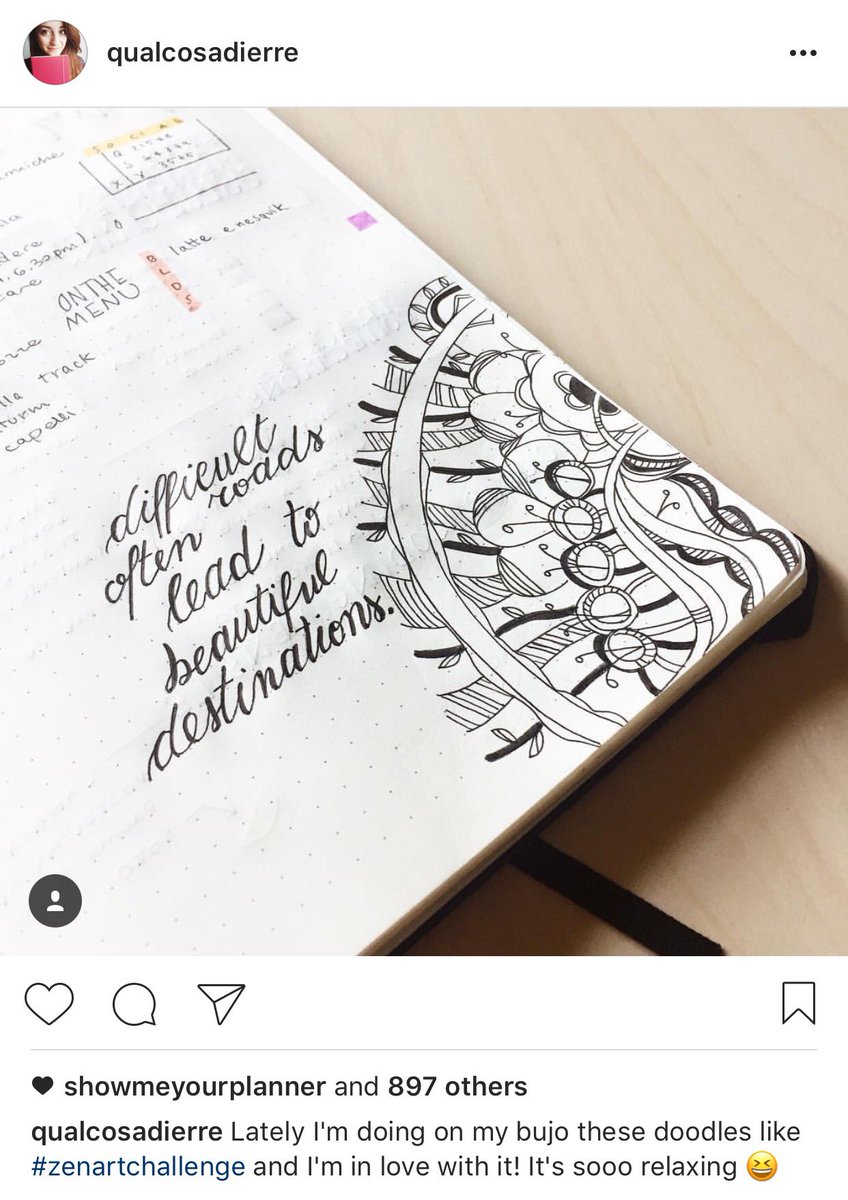 qualcosadierre
SOCIAL
ON THE
MENU
B
L
D
S
latte e nesquik
6.30pm)
track
capelli
difficult
often roads
lead to
beautiful
destinations.
showmeyourplanner and 897 others
qualcosadierre Lately I'm doing on my bujo these doodles like
#zenartchallenge and I'm in love with it! It's sooo relaxing 😆